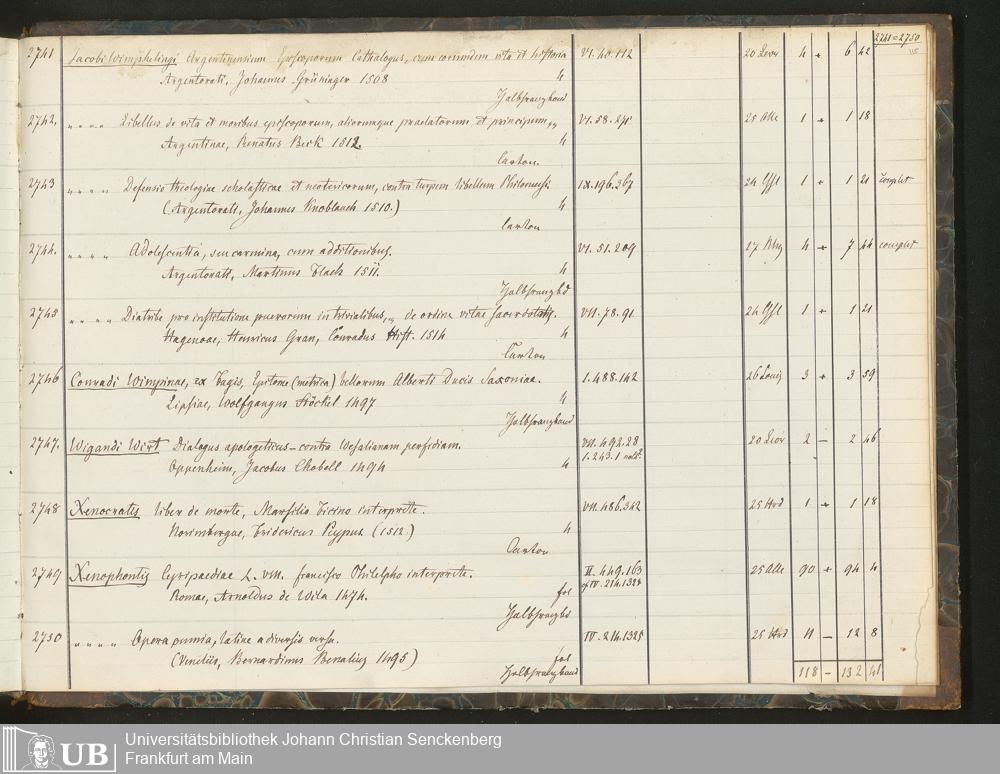 2741=2750
2741 Jacobi Wimphelingi Argentinensium Episcoporum Cathalogus, cum eorumdem vita et historia VI. 40. 112 20 4 + 6 42
Argentorati, Johannes Grüninger 1508 4
Halbfranzband
2742. " " " " Libellus de vita et moribus episcoporum, aliorumque praelatorum et principum, VI. 58. 25 Alle 1 + 1 18
Argentinae, Renatus Beck 1512. 4
Carton.
2743 " " " " Defensio theologiae scholasticae et neotericorum, contra turpem libellum Philomusi. IX. 196. 367 24 1 + 1 21 complet
(Argentorati, Johannes Knoblauch 1510.) 4
Carton
2744. " " " " Adolescentia, seu carmina, cum additionibus. VI. 51. 209 17 4 + 7 44 complet
Argentorati, Martinus Flach 1511. 4
Halbfranzbd
2745 " " " " Diatribe pro institutione puerorum in trivialibus, de ordine vitae sacerdotalis. VII. 78. 91 24 1 + 1 21
Hagenoae, Henricus Gran, Conradus Hist. 1514 4
Carton
2746 Conradi Wimpinae, ex Fagis, Epitome (metrica) bellorum Alberti Ducis Saxoniae. I. 488. 142 26 3 + 3 59
Lipsiae, Wolfgangus Stöckel 1497 4
Halbfranzband
2747. Wigandi Wirt Dialogus apologeticus - contra Wesalianam perfidiam. VII. 492. 28 20 2 - 2 46
Oppenheim, Jacobus Chobell 1494 4 I. 243. 1
2748 Xenocratis liber de morte, Marsilio Ficino interprete. VII. 486. 342 25 1 + 1 18
Norimbergae, Fridericus Peypus (1512.) 4
Carton
2749 Xenophontis Cyripaediae L. VIII. Francisco Philelpho interprete. II. 449. 163 25 Alle 90 + 94 4
Romae, Arnoldus de Vila 1474. fol IV. 214. 1324
Halbfranzbd
2750 " " " " Opera omnia, latine a diversis versa. IV. 214. 1325 25 11 - 12 8
(Venetiis, Bernardinus Benalius 1495) fol
Halbfranzband 118 - 132 41
UB Universitätsbibliothek Johann Christian Senckenberg
Frankfurt am Main